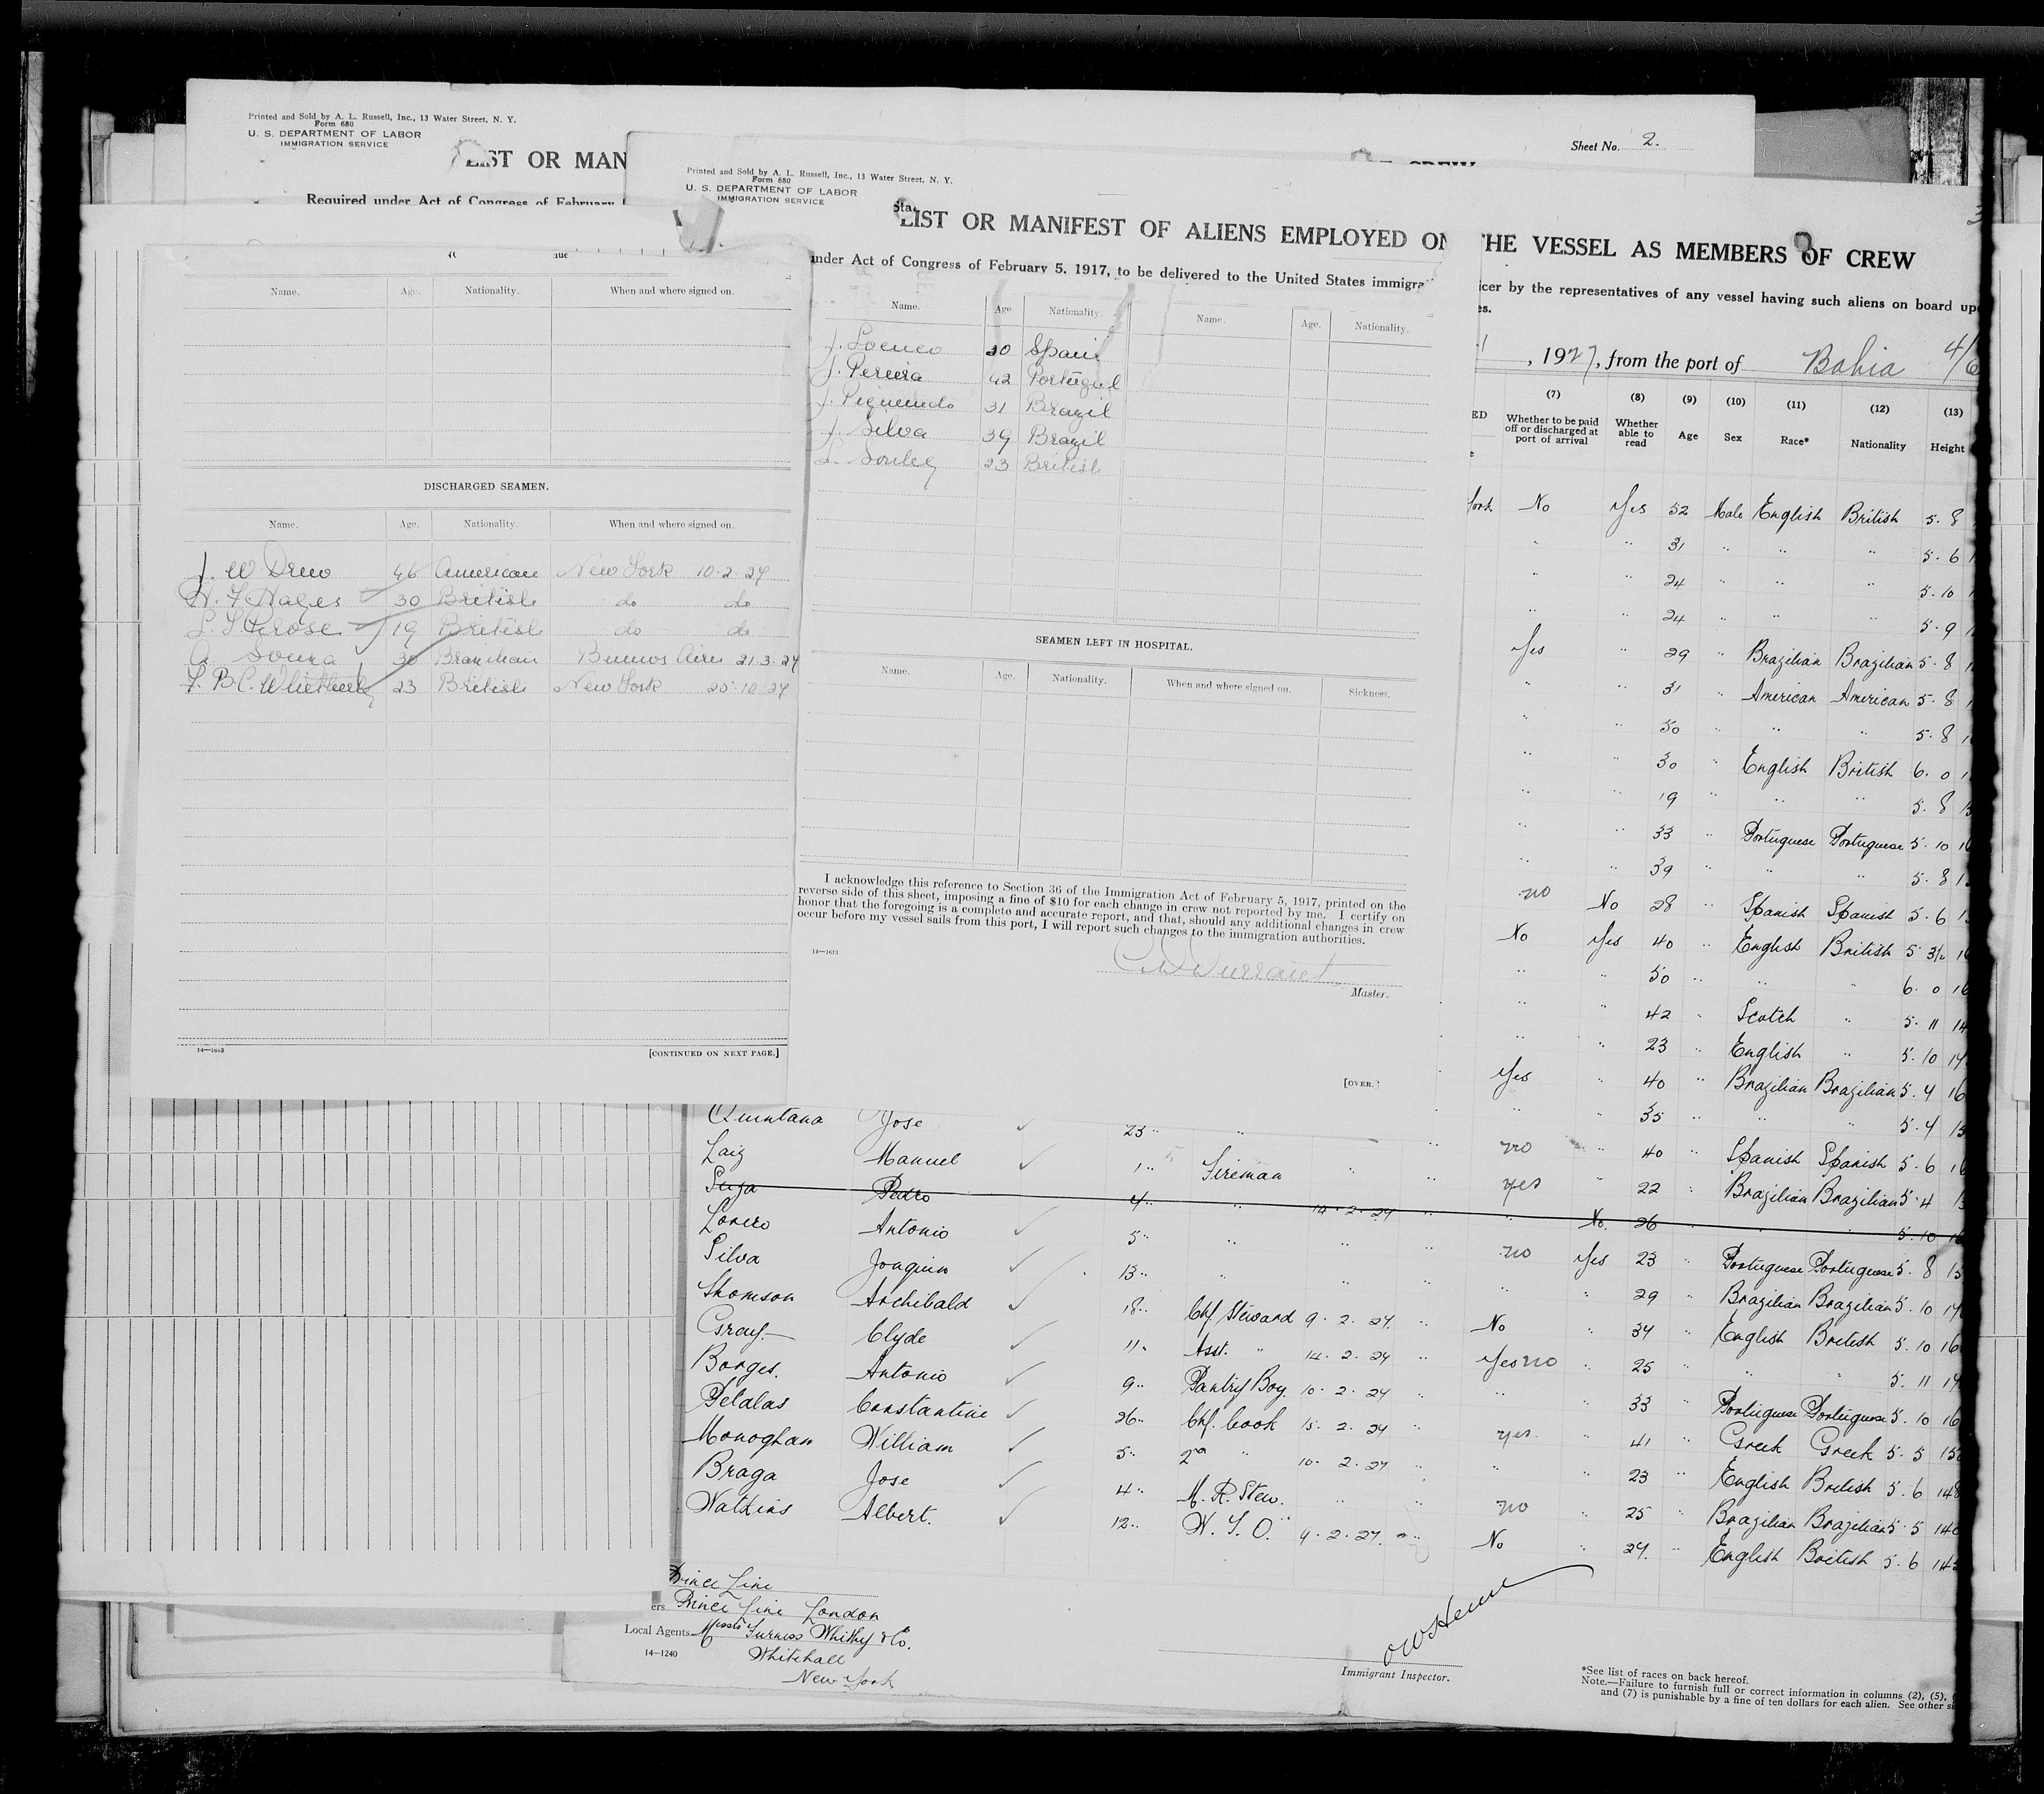 Printed and Sold by A. L. Russell, Inc., 13 Water Street, N. Y.
Form 680
U. S. DEPARTMENT OF LABOR
IMMIGRATION SERVICE
LIST OR MAN
Required under Act of Congress of February
Sheet No. 2.
Name. Age. Nationality. When and where signed on.
DISCHARGED SEAMEN.
Name. Age. Nationality. When and where signed on.
J. W Drew 46 American New York 10·2·27
H. F. Hayes 30 British do do
19 British do do
A. Souza 30 Brazilian Buenos Aires 21·3·27
23 British New York 25·10·27
14—1613
[CONTINUED ON NEXT PAGE.]
Printed and Sold by A. L. Russell, Inc., 13 Water Street, N. Y.
Form 680
U. S. DEPARTMENT OF LABOR
IMMIGRATION SERVICE
LIST OR MANIFEST OF ALIENS EMPLOYED ON
under Act of Congress of February 5, 1917, to be delivered to the United States immigra
Name. Age Nationality. Name. Age. Nationality.
30 Spain
J. Pereira 42 Portugal
31 Brazil
J. Silva 39 Brazil
23 British
SEAMEN LEFT IN HOSPITAL.
Name. Age. Nationality. When and where signed on. Sickness.
I acknowledge this reference to Section 36 of the Immigration Act of February 5, 1917, printed on the
reverse side of this sheet, imposing a fine of $10 for each change in crew not reported by me. I certify on
honor that the foregoing is a complete and accurate report, and that, should any additional changes in crew
occur before my vessel sails from this port, I will report such changes to the immigration authorities.
14—1613
Master.
[OVER.]
THE VESSEL AS MEMBERS OF CREW
icer by the representatives of any vessel having such aliens on board up
es.
, 1927, from the port of Bahia 4/6
(7) (8) (9) (10) (11) (12) (13)
Whether to be paid off or discharged at port of arrival Whether able to read Age Sex Race* Nationality Height
York No Yes 52 Male English British 5. 8
" " 31 " " " 5. 6
24 " " " 5. 10
" " 24 " " 5. 9
Yes " 29 " Brazilian Brazilian 5. 8
" " 31 " American American 5. 8
" " 50 " " " 5. 8
" " 30 " English British 6. 0
" " 19 " " " 5. 8
" " 33 " Portuguese Portuguese 5. 10
" " 39 " " " 5. 8
no No 28 " Spanish Spanish 5. 6
No Yes 40 " English British 5 3½
" " 50 " " " 6. 0
" " 42 " Scotch " 5. 11
" " 23 " English " 5. 10
Yes " 40 " Brazilian Brazilian 5. 4
Quintana Jose 23 " " " " 35 " " " 5. 4
Laiz Manuel 1 " Fireman " " no " 40 " Spanish Spanish 5. 6
Suza Pedro 4 " " 10. 2. 27 " yes " 22 " Brazilian Brazilian 5. 4
Antonio 5 " " " " " No. 26 " " " 5. 10
Silva Joaquin 13 " " " " no Yes 23 " Portuguese Portuguese 5. 8
Thomson Archibald 18 " Chf. Steward 9. 2. 27. " " " 29 " Brazilian Brazilian 5. 10
Gray. Clyde 11 " Asst. " 14. 2. 27 " No " 34 " English British 5. 10
Borges. Antonio 9 " Pantry Boy. 10. 2. 27 " Yes no " 25 " " " 5. 11
Constantine 26 " Chf. Cook 15. 2. 27 " " " 33 " Portuguese Portuguese 5. 10
Monoghan William 5 " 2nd " 10. 2. 27 " yes " 41 " Greek Greek 5. 5
Braga Jose 4 " M. R. Stew. " " " " 23 " English British 5. 6
Watkins Albert. 12 " W. T. O. 9. 2. 27. " no " 25 " Brazilian Brazilian 5. 5
No " 27. " English British 5. 6
Prince Line
ers Prince Line London
Local Agents Messrs Furness Whithy & Co.
14—1240
Whitehall
New York
Immigrant Inspector.
*See list of races on back hereof.
Note.—Failure to furnish full or correct information in columns (2), (5),
and (7) is punishable by a fine of ten dollars for each alien. See other si